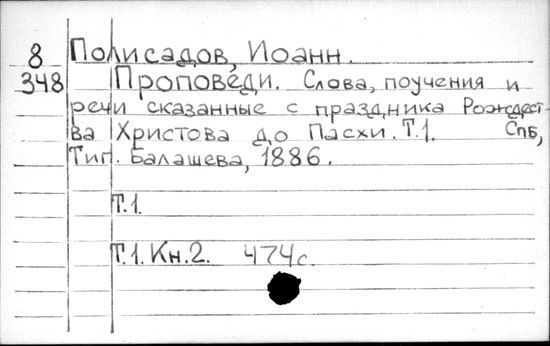 8 Полисадов, Иоанн.
348 Проповеди. Слова, поучения и
речи сказанные с праздника Рождест-
ва Христова до Пасхи. Т.1. Спб,
Тип. Балашева, 1886.
Т.1.
Т.1. Кн.2. 474с.